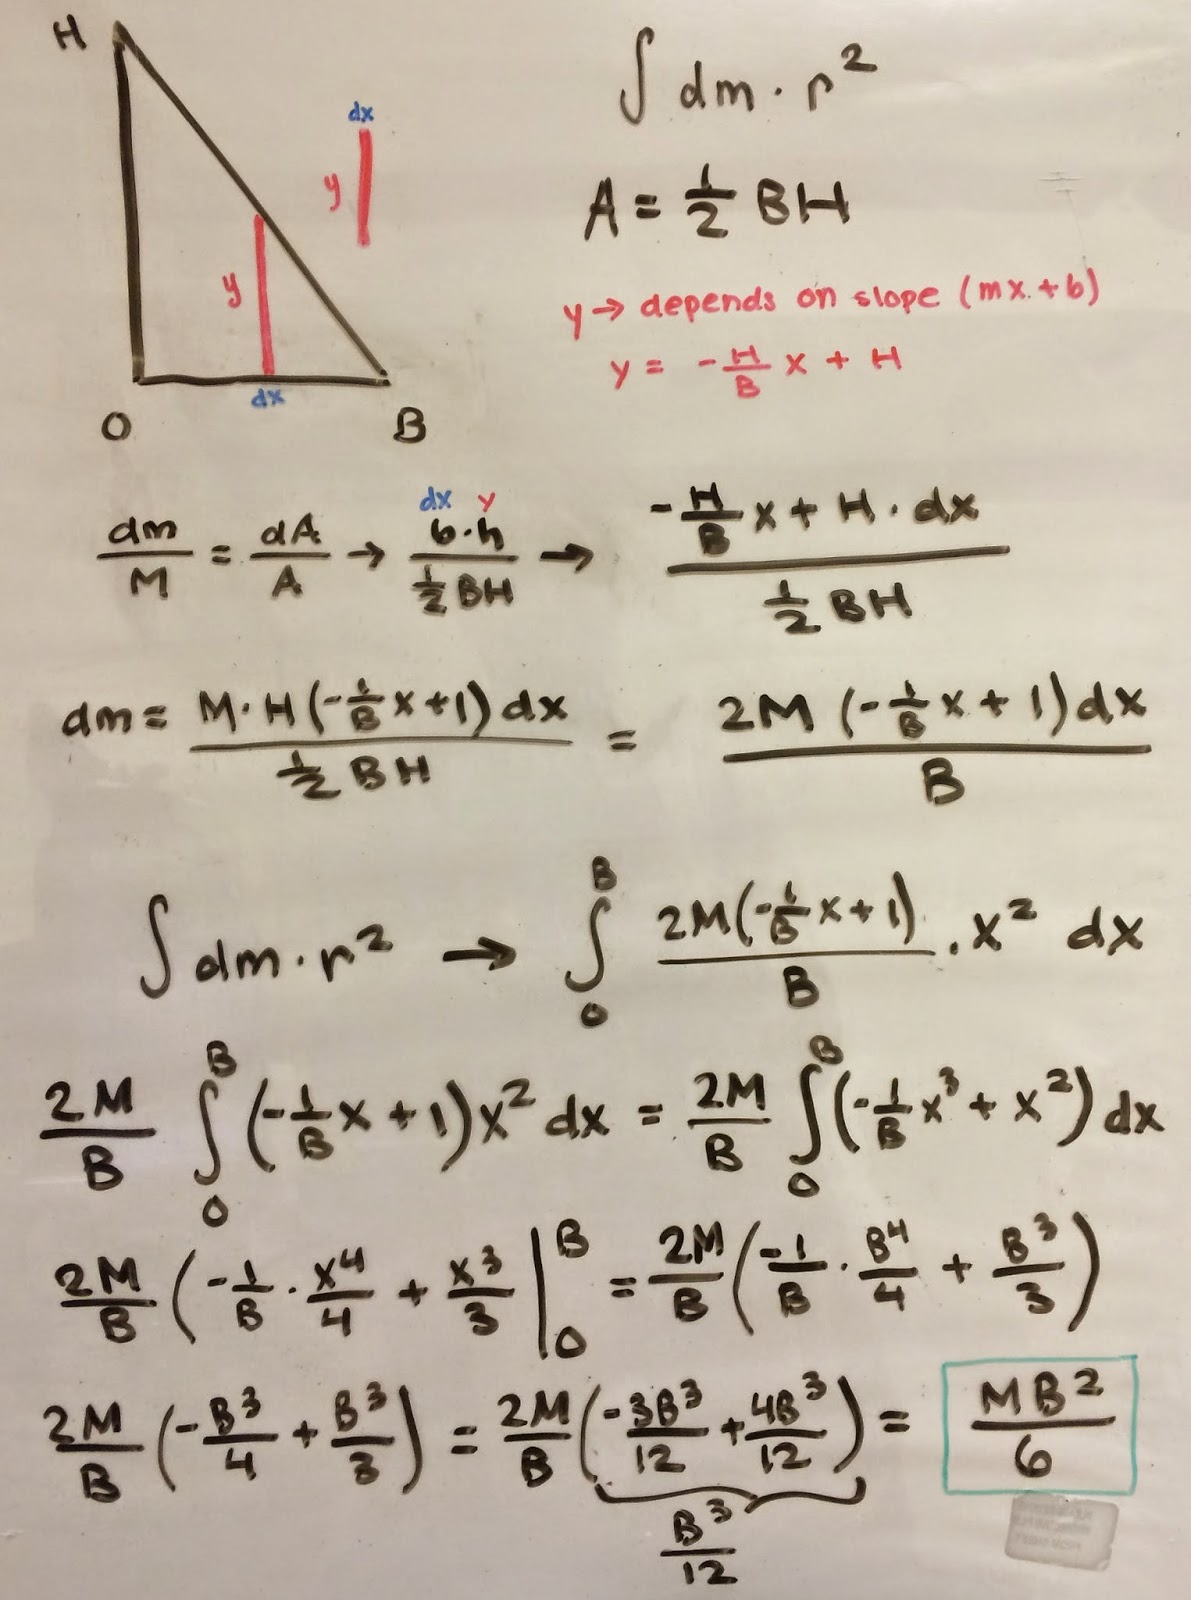 H
dx
y
y
dx
O
B
∫ dm · r²
A = 1/2 BH
y → depends on slope (mx + b)
y = -H/B x + H
dm/M = dA/A → dx y b·h / 1/2 BH → -H/B x + H · dx / 1/2 BH
dm = M·H(-1/B x + 1) dx / 1/2 BH = 2M (-1/B x + 1) dx / B
∫ dm · r² → ∫₀ᴮ 2M(-1/B x + 1) / B · x² dx
2M/B ∫₀ᴮ (-1/B x + 1) x² dx = 2M/B ∫₀ᴮ (-1/B x³ + x²) dx
2M/B (-1/B · x⁴/4 + x³/3 |₀ᴮ = 2M/B (-1/B · B⁴/4 + B³/3)
2M/B (-B³/4 + B³/3) = 2M/B (-3B³/12 + 4B³/12) = MB²/6
B³/12